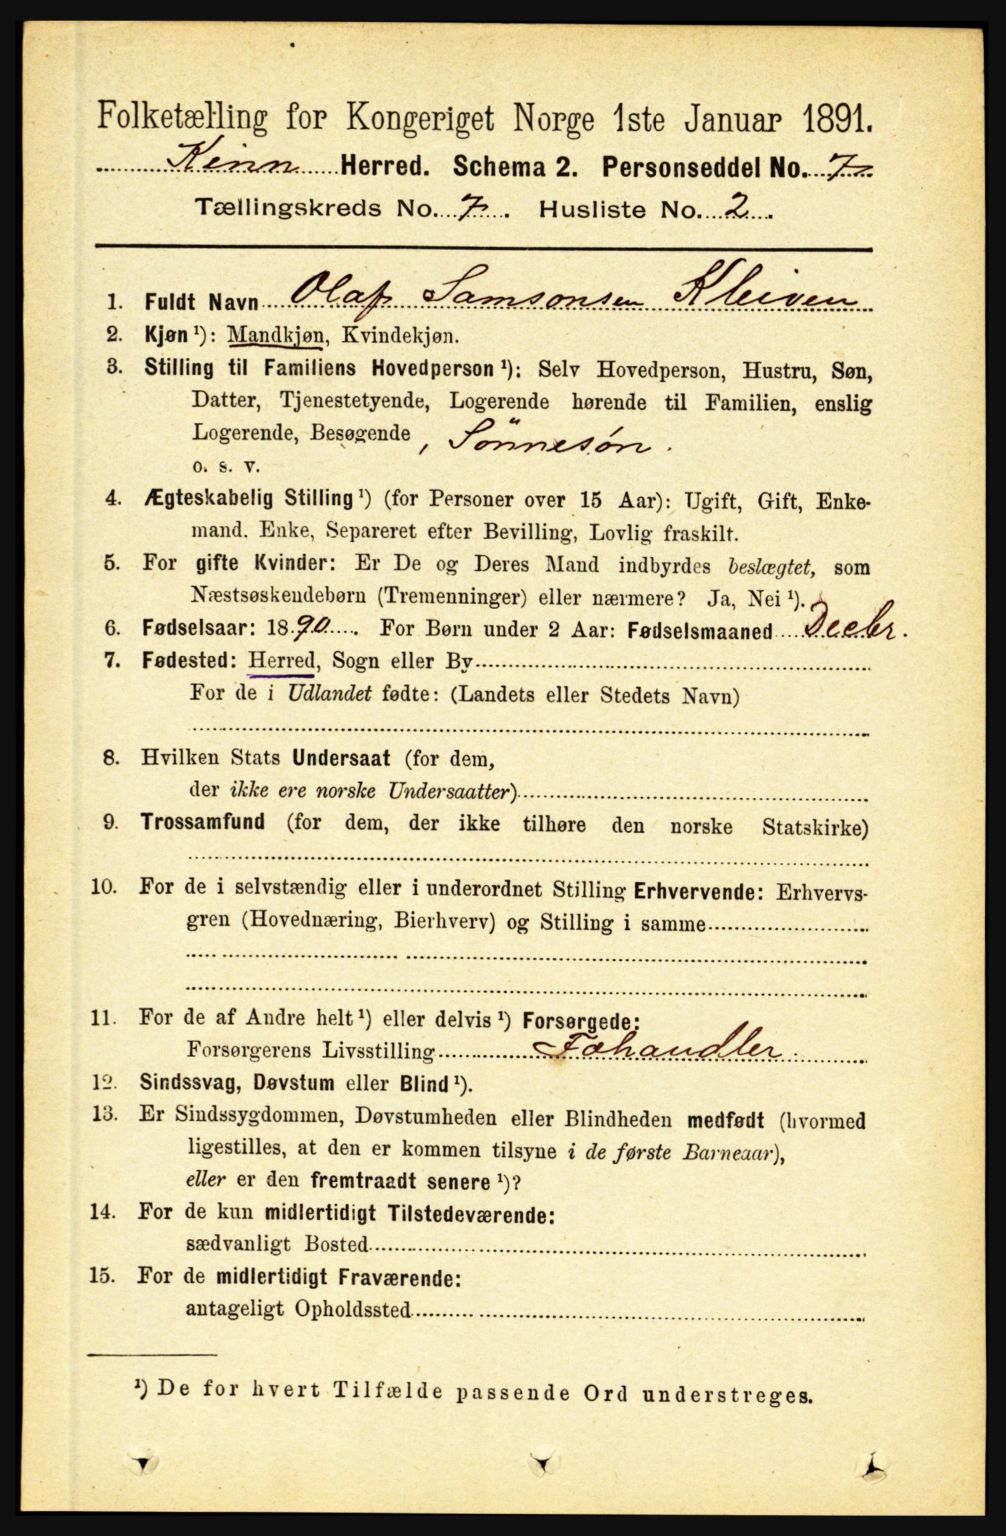 Folketælling for Kongeriget Norge 1ste Januar 1891.
Kinn Herred. Schema 2. Personseddel No. 7
Tællingskreds No. 7. Husliste No. 2.
1. Fuldt Navn Olaf Samsonsen Kleiven
2. Kjøn ¹): Mandkjøn, Kvindekjøn.
3. Stilling til Familiens Hovedperson ¹): Selv Hovedperson, Hustru, Søn,
Datter, Tjenestetyende, Logerende hørende til Familien, enslig
Logerende, Besøgende, Sönnesøn.
o. s. v.
4. Ægteskabelig Stilling ¹) (for Personer over 15 Aar): Ugift, Gift, Enke-
mand. Enke, Separeret efter Bevilling, Lovlig fraskilt.
5. For gifte Kvinder: Er De og Deres Mand indbyrdes beslægtet, som
Næstsøskendebørn (Tremenninger) eller nærmere? Ja, Nei ¹).
6. Fødselsaar: 1890. For Børn under 2 Aar: Fødselsmaaned Decbr.
7. Fødested: Herred, Sogn eller By
For de i Udlandet fødte: (Landets eller Stedets Navn)
8. Hvilken Stats Undersaat (for dem,
der ikke ere norske Undersaatter)
9. Trossamfund (for dem, der ikke tilhøre den norske Statskirke)
10. For de i selvstændig eller i underordnet Stilling Erhvervende: Erhvervs-
gren (Hovednæring, Bierhverv) og Stilling i samme
11. For de af Andre helt ¹) eller delvis ¹) Forsørgede:
Forsørgerens Livsstilling Fæhandler.
12. Sindssvag, Døvstum eller Blind ¹).
13. Er Sindssygdommen, Døvstumheden eller Blindheden medfødt (hvormed
ligestilles, at den er kommen tilsyne i de første Barneaar),
eller er den fremtraadt senere ¹)?
14. For de kun midlertidigt Tilstedeværende:
sædvanligt Bosted
15. For de midlertidigt Fraværende:
antageligt Opholdssted
¹) De for hvert Tilfælde passende Ord understreges.